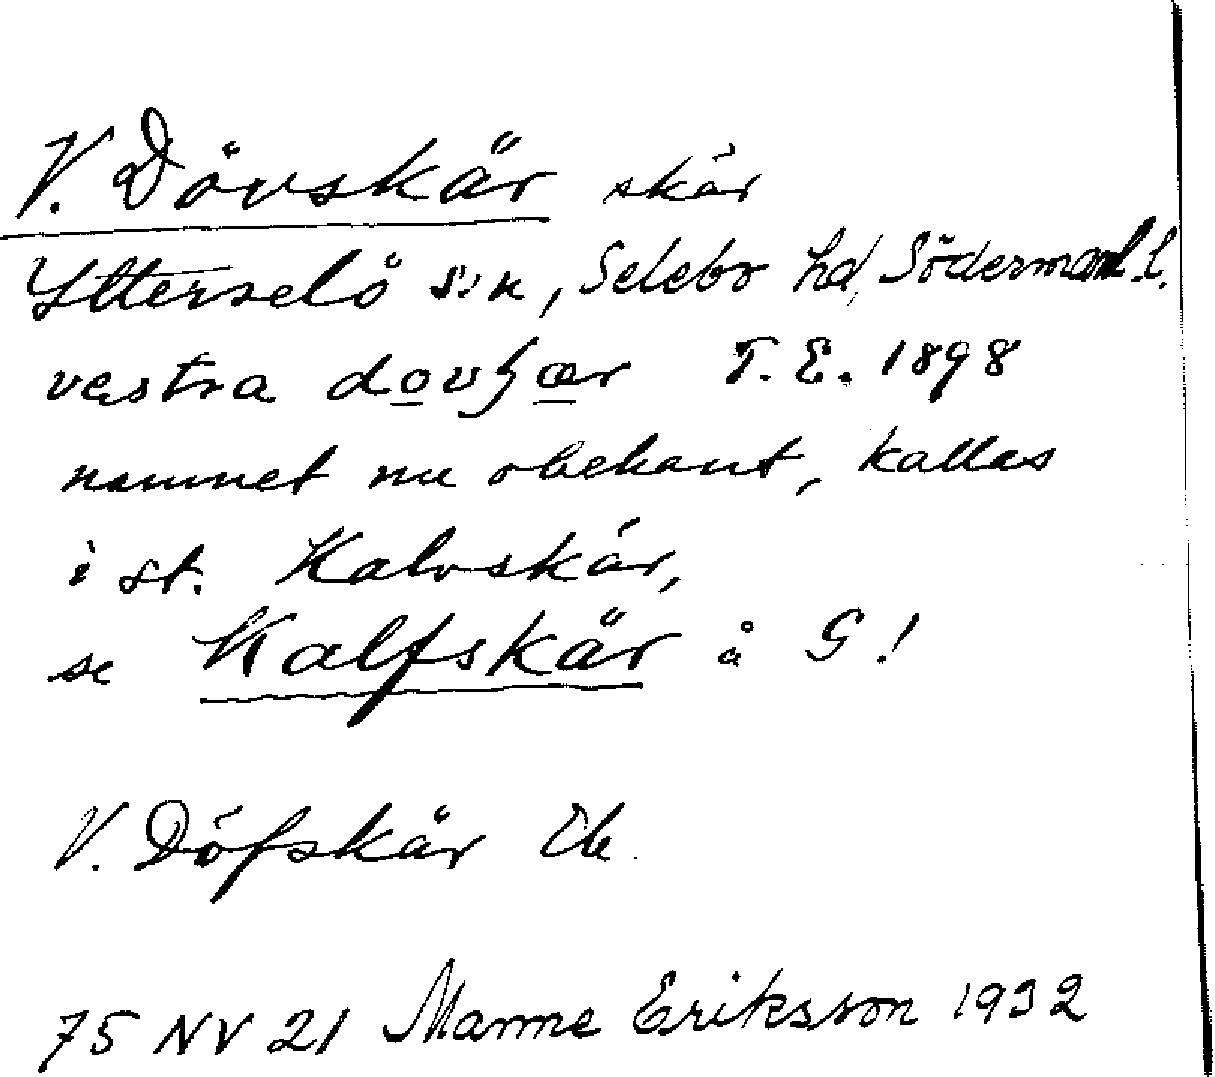 V. Dövskär skär
Ytterselö sn, Selebo hd, Södermanl. l.
västra
T. E. 1898
namnet nu obekant, kallas
i st. Kalvskär,
se Kalfskär å G!
V. Döfskär
75 NV 21 Manne Eriksson 1932